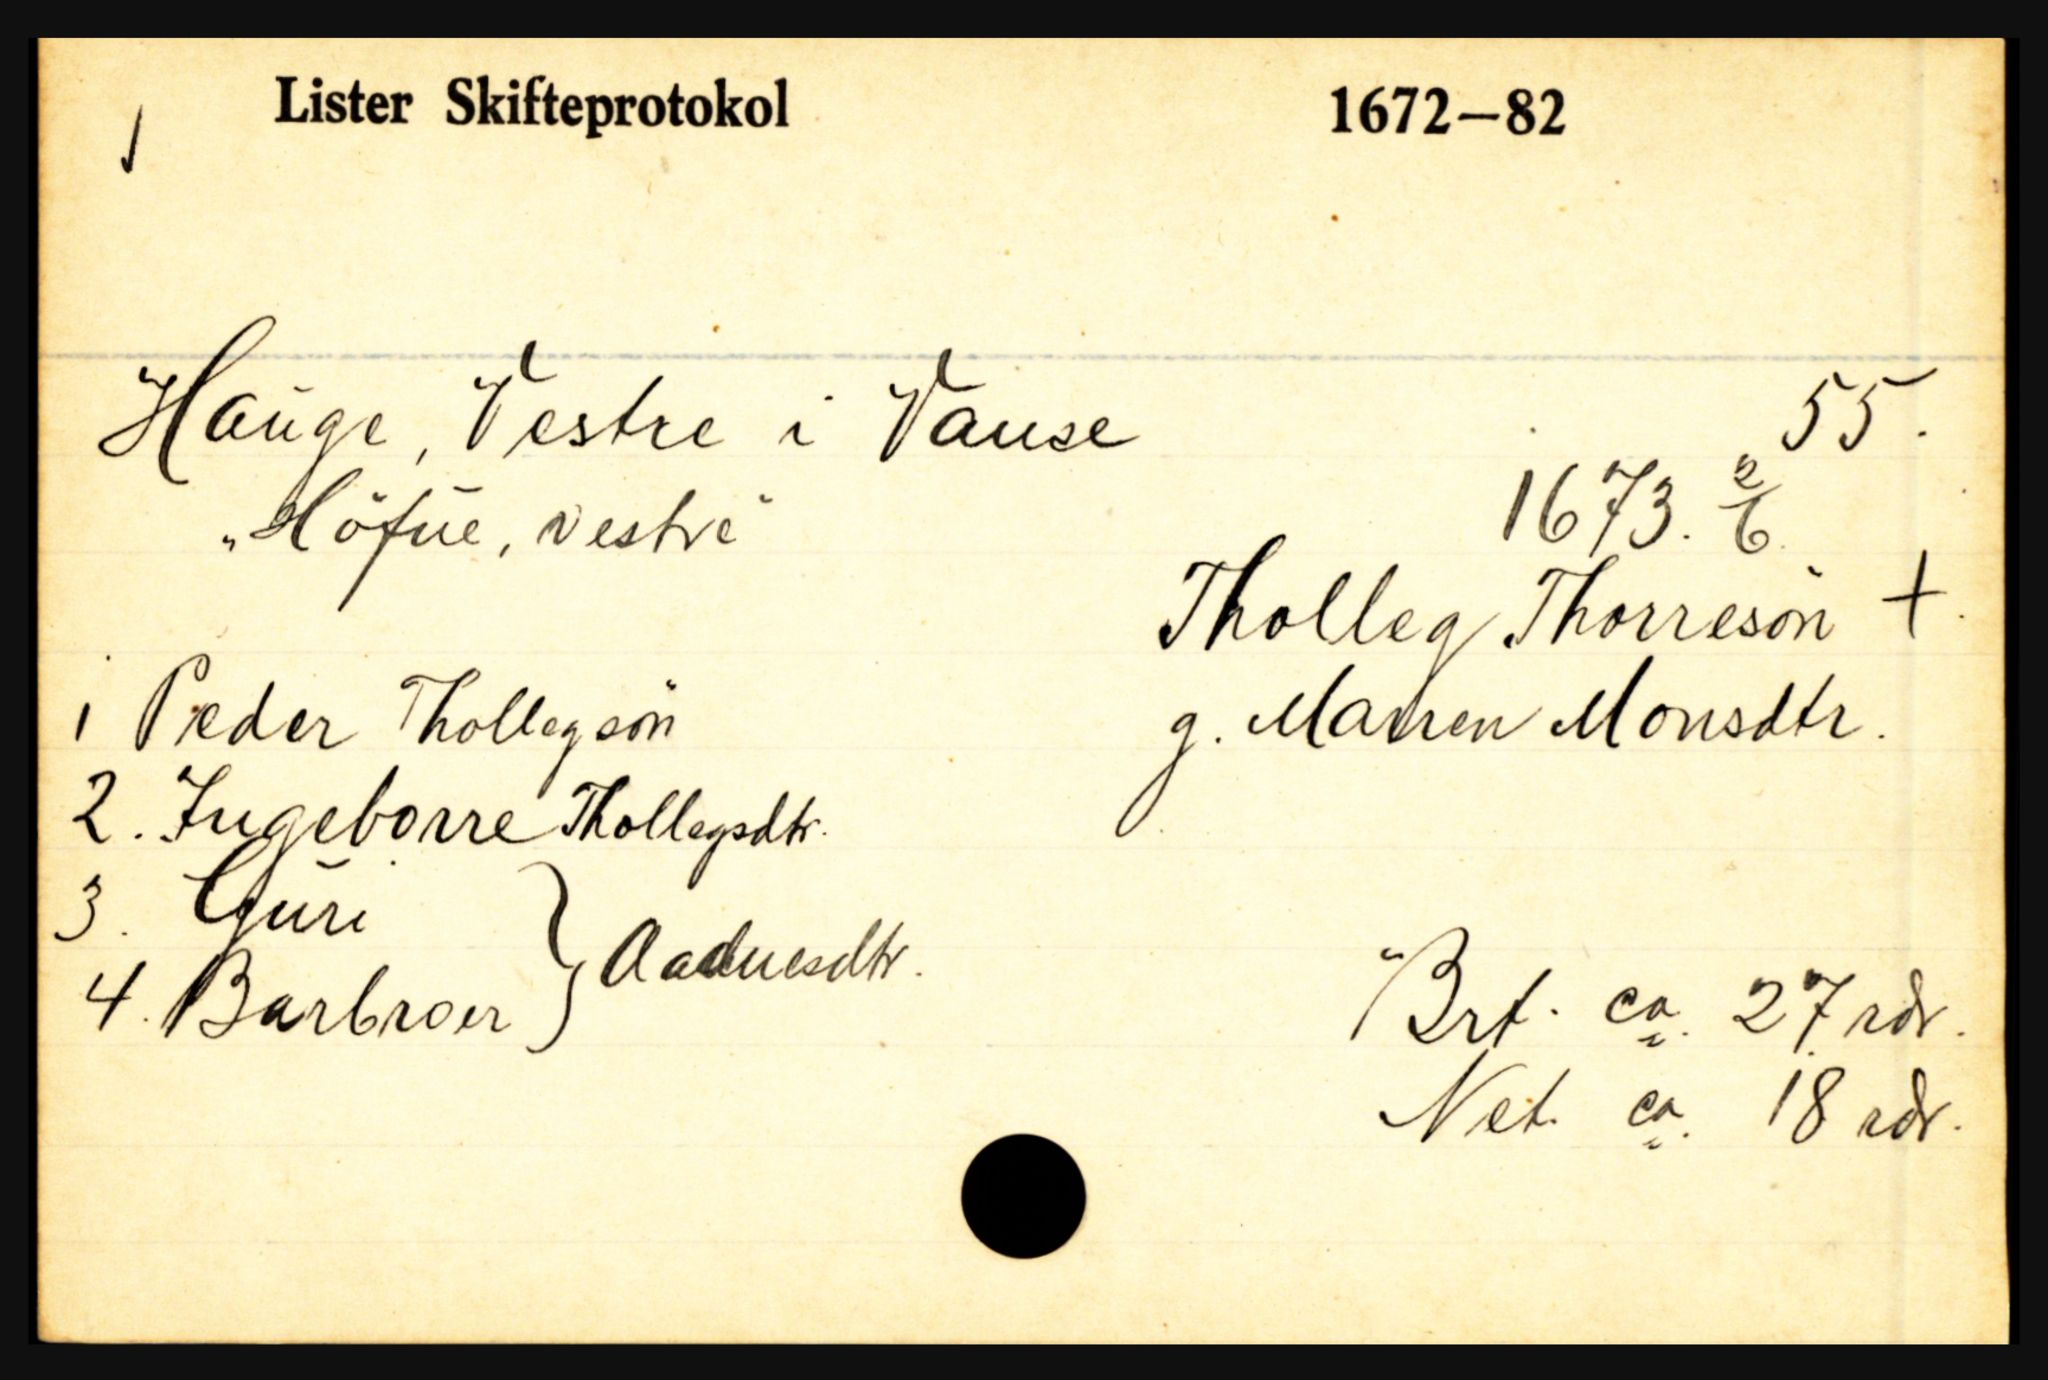 Lister Skifteprotokol 1672—82
Hauge, Vestre i Vanse 55.
"Höfue, vestre" 1673. 2/6.
Tholleg Thorresön +.
1 Peder Thollegsön g. Marren Monsdtr.
2. Ingeborre Thollegsdtr.
3. Guri
4. Barbroer } Aaduesdtr.
Brt. ca. 27 rdr.
Net. ca. 18 rdr.